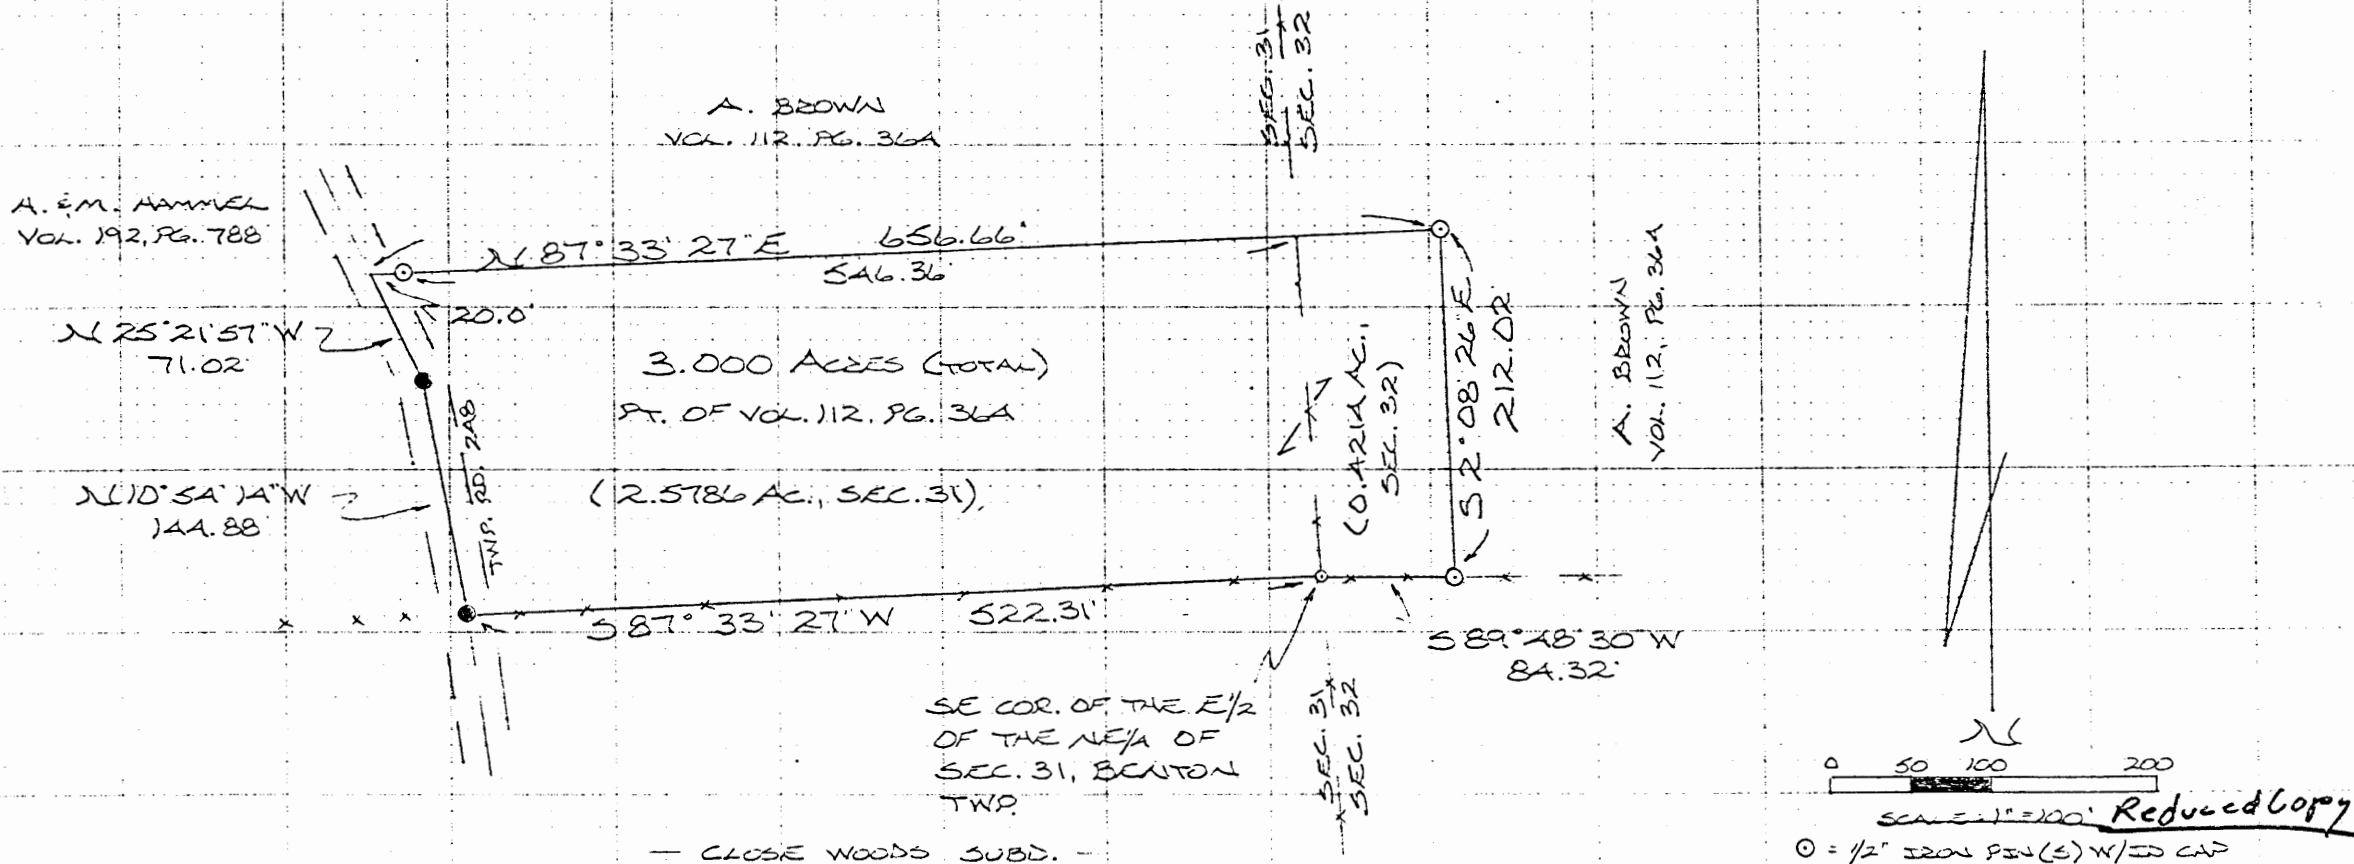 SEC. 31
SEC. 32
A. BROWN
VOL. 112. PG. 364
A. & M. HAMMEL
VOL. 192, PG. 788
N 87° 33' 27" E 656.66'
546.36'
20.0'
N 25° 21' 57" W
71.02'
3.000 ACRES (TOTAL)
PT. OF VOL. 112. PG. 364
(2.5786 AC., SEC. 31)
N 10° 54' 14" W
144.88'
TWP. RD. 248
(0.4214 AC.,
SEC. 32)
S 2° 08' 26" E
212.02'
A. BROWN
VOL. 112, PG. 364
S 87° 33' 27" W 522.31'
S 89° 48' 30" W
84.32'
SE COR. OF THE E 1/2
OF THE NE 1/4 OF
SEC. 31, BENTON
TWP.
SEC. 31
SEC. 32
— CLOSE WOODS SUBD. —
N
0 50 100 200
SCALE: 1" = 100' Reduced Copy
⊙ = 1/2" IRON PIN(S) W/ID CAP